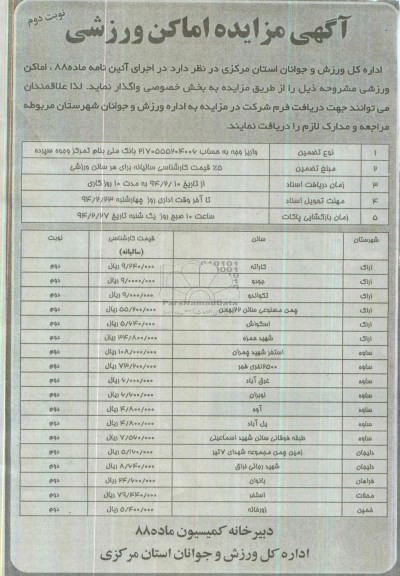 آگهی مزایده اماکن ورزشی
نوبت دوم
اداره کل ورزش و جوانان استان مرکزی در نظر دارد در اجرای آئین نامه ماده۸۸ ، اماکن
ورزشی مشروحه ذیل را از طریق مزایده به بخش خصوصی واگذار نماید. لذا علاقمندان
می توانند جهت دریافت فرم شرکت در مزایده به اداره ورزش و جوانان شهرستان مربوطه
مراجعه و مدارک لازم را دریافت نمایند.
۱ نوع تضمین واریز وجه به حساب ۲۱۷۰۵۵۵۲۰۴۰۰۶ بانک ملی بنام تمرکز وجوه سپرده
۲ مبلغ تضمین ۵٪ قیمت کارشناسی سالیانه برای هر سالن ورزشی
۳ زمان دریافت اسناد از تاریخ ۹۴/۲/۱۰ به مدت ۱۰ روز کاری
۴ مهلت تحویل اسناد تا آخر وقت اداری روز چهارشنبه ۹۴/۲/۲۳
۵ زمان بازگشایی پاکات ساعت ۱۰ صبح روز یک شنبه تاریخ ۹۴/۲/۲۷
شهرستان سالن قیمت کارشناسی (سالیانه) نوبت
اراک کاراته ۹/۲۴۰/۰۰۰ ریال دوم
اراک جودو ۹/۰۰۰۰/۰۰۰ ریال دوم
اراک تکواندو ۹/۰۰۰/۰۰۰ ریال دوم
اراک چمن مصنوعی سالن ۲۲بهمن ۵۵/۲۰۰/۰۰۰ ریال دوم
اراک اسکواش ۵/۶۴۰/۰۰۰ ریال دوم
اراک شهید حمزه ۳۴/۸۰۰/۰۰۰ ریال دوم
ساوه استخر شهید چمران ۱۰۸/۰۰۰/۰۰۰ ریال دوم
ساوه ۲۵۰۰نفری فجر ۷۳/۲۰۰/۰۰۰ ریال دوم
ساوه غرق آباد ۶/۰۰۰/۰۰۰ ریال دوم
ساوه نوبران ۶/۶۰۰/۰۰۰ ریال دوم
ساوه آوه ۴/۸۰۰/۰۰۰ ریال دوم
ساوه یل آباد ۴/۸۰۰/۰۰۰ ریال دوم
ساوه طبقه فوقانی سالن شهید اسماعیلی ۷/۵۶۰/۰۰۰ ریال دوم
دلیجان زمین چمن مجموعه شهدای ۷تیر ۵/۱۶۰/۰۰۰ ریال دوم
دلیجان شهید رجائی نراق ۸/۶۴۰/۰۰۰ ریال دوم
فراهان بانوان ۲۴/۶۰۰/۰۰۰ ریال دوم
محلات استخر ۷۹/۴۴۰/۰۰۰ ریال دوم
خمین زورخانه ۵/۴۰۰/۰۰۰ ریال دوم
ParsNamadData
دبیرخانه کمیسیون ماده۸۸
اداره کل ورزش و جوانان استان مرکزی